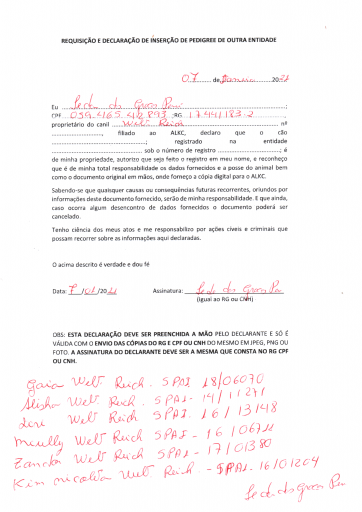 REQUISIÇÃO E DECLARAÇÃO DE INSERÇÃO DE PEDIGREE DE OUTRA ENTIDADE
07 de Janeiro 2021
Eu Lede das Graças ;
CPF RG 17.441183-2
proprietário do canil Welt Reich nº
, filiado ao ALKC, declaro que o cão
; registrado na entidade
sob o número de registro ; é
de minha propriedade, autorizo que seja feito o registro em meu nome, e reconheço
que é de minha total responsabilidade os dados fornecidos e a posse do animal bem
como o documento original em mãos, onde forneço a cópia digital para o ALKC.
Sabendo-se que quaisquer causas ou consequências futuras recorrentes, oriundos por
informações deste documento fornecido, serão de minha responsabilidade. E que ainda,
caso ocorra algum desencontro de dados fornecidos o documento poderá ser
cancelado.
Tenho ciência dos meus atos e me responsabilizo por ações cíveis e criminais que
possam recorrer sobre as informações aqui declaradas.
O acima descrito é verdade e dou fé
Data: 7 /01 /2021 Assinatura:
(Iguai ao RG ou CNH)
OBS: ESTA DECLARAÇÃO DEVE SER PREENCHIDA A MÃO PELO DECLARANTE E SÓ É
VÁLIDA COM O ENVIO DAS CÓPIAS DO RG E CPF OU CNH DO MESMO EM JPEG, PNG OU
FOTO. A ASSINATURA DO DECLARANTE DEVE SER A MESMA QUE CONSTA NO RG CPF
OU CNH.
Gaia Welt Reich. SPAI 18/06070
Welt Reich. SPAI - 14/11271
Welt Reich SPAI - 16/13148
Welt Reich SPAI - 16/
Welt Reich SPAI - 17/01380
Kim Welt Reich - SPAI - 16/01204